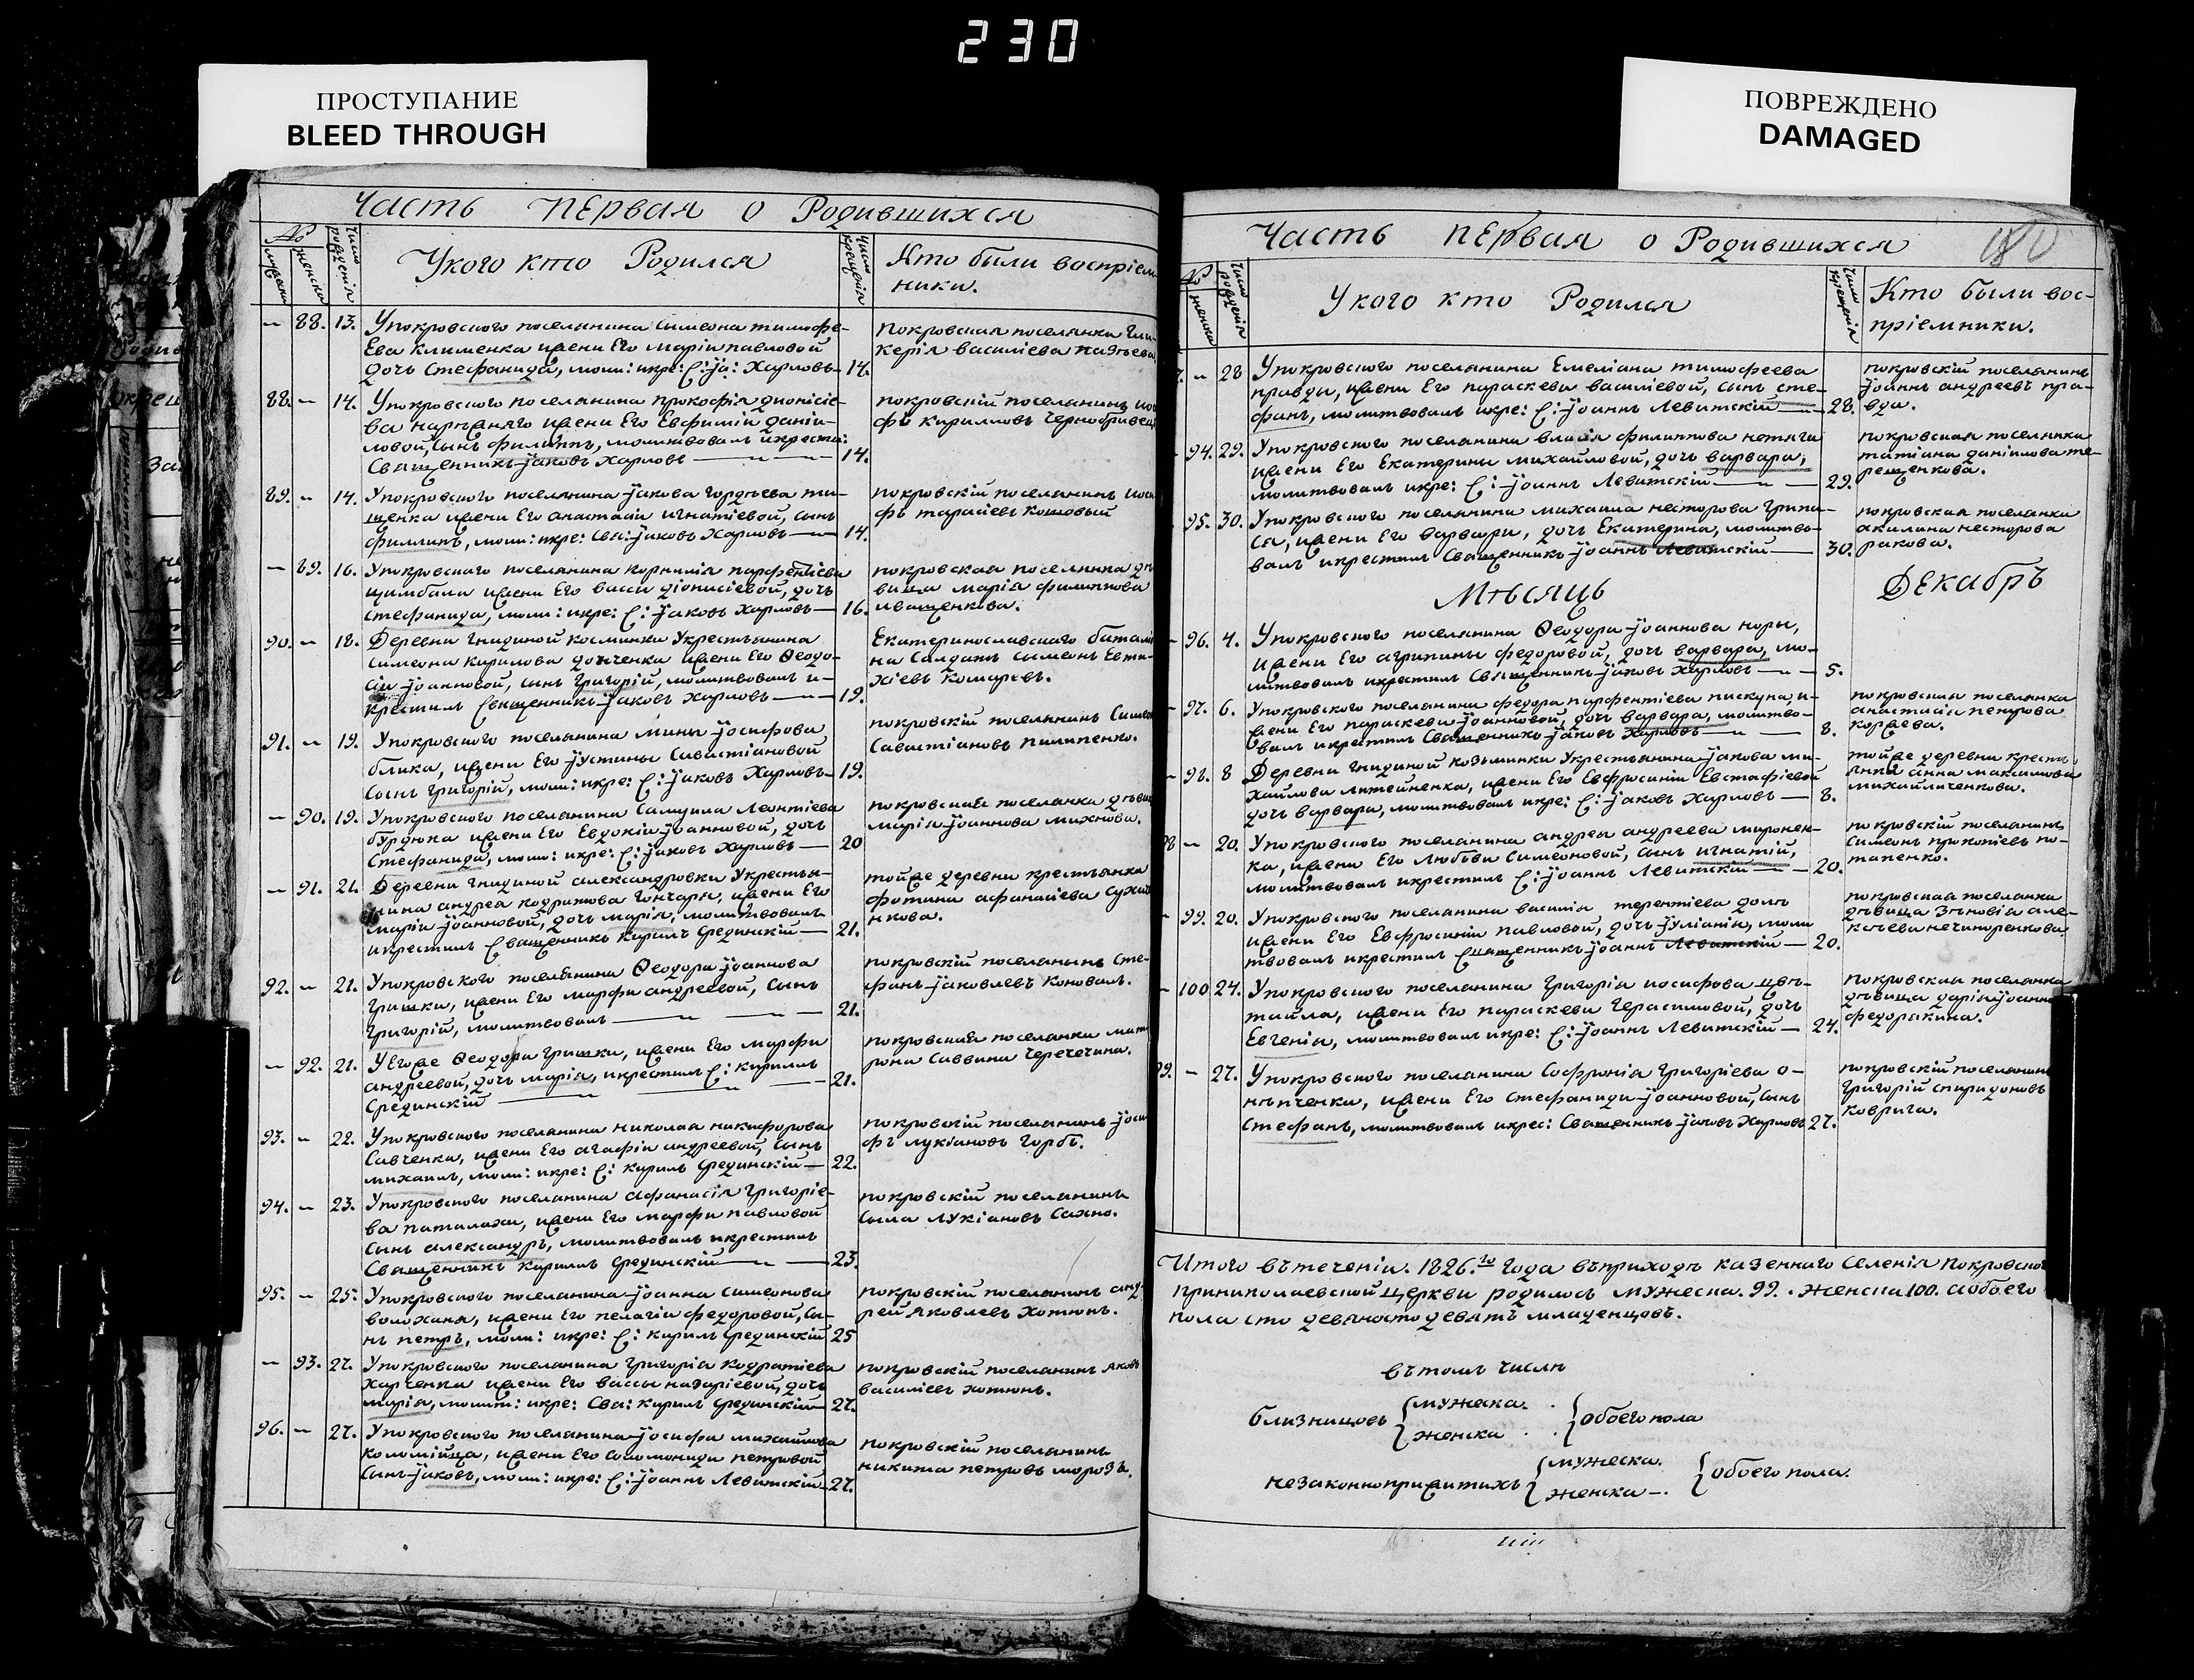 230
ПРОСТУПАНИЕ
BLEED THROUGH
ПОВРЕЖДЕНО
DAMAGED
Часть первая о Родившихся
№
мужеска
женска
Число рожденія
У кого кто Родился
Число крещенія
Кто были воспріем
ники.
– 88. 13. У покровского поселянина Симеона тимофе-
Ева клименка жени Его маріи павловой
дочь Стефанида, моли: и кре: С: Іа: Харловъ – 14.
покровская поселянка Гли
керія василіева
88. – 14. У покровского поселянина прокофія діонисіе-
ва жени Его Евфиміи даніи-
ловой, сынъ филиппъ, молитвовалъ и крести:
Священникъ Іаковъ Харловъ – 14.
покровскій поселянинъ
фъ Кириловъ Чернобривец
89. – 14. У покровского поселянина Іакова гордѣева ти-
щенка жени Его анастасіи игнатіевой, сынъ
филлипъ, моли: и кре: Свя: Іаковъ Харловъ – 14.
покровскій поселянинъ Иоси
фъ тарасіевъ Кошовый
– 89. 16. У покровского поселянина корнилія парфентіева
цимбала жени Его васси діонисіевой, дочь
Стефанида, моли: и кре: С: Іаковъ Харловъ – 16.
покровская поселянка дѣ
вица марія филиппова
иващенкова.
90. – 18. Деревни гнидиной косминки У крестьянина
Симеона Кирилова донченка жени Его Ѳеодо-
сіи Іоанновой, сынъ Григорій, молитвовалъ и
крестилъ Священникъ Іаковъ Харловъ – 19.
Екатеринославского баталіо
на Салдатъ Симеонъ Евти-
хіевъ Комаревъ.
91. – 19. У покровского поселянина мины Іосифова
блика, жени Его Іустины Савастіановой
Сынъ григорій, моли: и кре: С: Іаковъ Харловъ – 19.
покровскій поселянинъ Симео
Савастіановъ пилипенко.
– 90. 19. У покровского поселянина Самуила Леонтіева
бурдюка жени Его Евдокіи Іоанновой, дочь
Стефанида, моли: и кре: С: Іаковъ Харловъ – 20
покровская поселянка дѣви
марія Іоаннова михнова.
– 91. 21. Деревни гнидиной александровки У крестья-
нина андрея кодратова Гончара, жени Его
маріи Іоанновой, дочь марія, молитвовалъ
и крестилъ Священникъ Кирилъ Срединскій – 21.
тойже деревни крестьянка
фотина афанасіева
нкова.
92. – 21. У покровского поселянина Ѳеодора Іоаннова
Гришки, жени Его марфи андреевой, сынъ
Григорій, молитвовалъ – 21.
покровскій поселянинъ Сте-
фанъ Іаковлевъ Коновалъ.
– 92. 21. У Егоже Ѳеодора Гришки, жени Его марфи
андреевой, дочь марія, и крестилъ С: Кирилъ
Срединскій – 21.
покровская поселянка мат
рона Саввина Черечечина.
93. – 22. У покровского поселянина николая никифорова
Савченка, жени Его агафіи андреевой, сынъ
михаилъ, моли: и кре: С: Кирилъ Срединскій – 22.
покровскій поселянинъ Іоси
фъ лукіановъ горбъ.
94. – 23. У покровского поселянина афанасія григоріе-
ва паталахи, жени Его марфи павловой
Сынъ александръ, молитвовалъ и крестилъ
Священникъ Кирилъ Срединскій – 23.
покровскій поселянинъ
Сыла лукіановъ Сахно.
95. – 25. У покровского поселянина Іоанна Симеонова
волохана, жени Его пелагіи федоровой, Сы-
нъ петръ, моли: и кре: С: Кирилъ Срединскій 25
покровскій поселянинъ анд-
рей Яковлевъ Хотюнъ.
– 93. 27. У покровского поселянина григорія кодратіева
Харченка жени Его вассы назаріевой, дочь
марія, молит: и кре: Свя: Кирилъ Срединскій 27.
покровскій поселянинъ яковъ
василіевъ хотюнъ.
96. – 27. У покровского поселянина Іосифа михайлова
Коломійца, жени Его Соломониди петровой
Сынъ Іаковъ, моли: и кре: С: Іоаннъ Левитскій 27.
покровскій поселянинъ
никита петровъ морозъ.
Часть первая о Родившихся
180
№
женска
Число рожденія
У кого кто Родился
Число крещенія
Кто были вос-
пріемники.
7. – 28 У покровского поселянина Емеліана тимофеева
правды, жени Его параскеви василіевой, сынъ сте-
фанъ, молитвовалъ и кре: С: Іоаннъ Левитскій – 28.
покровскій поселянинъ
Іоаннъ андреевъ пра-
вда.
– 94. 29. У покровского поселянина власія филиппова нетяги
жени Его Екатерины михайловой, дочь варвара,
молитвовалъ и кре: С: Іоаннъ Левитскій – 29.
покровская поселянка
татіана даніилова те-
рещенкова.
– 95. 30. У покровского поселянина михаила несторова Грипа-
са, жени Его варвари, дочь Екатерина, молитво-
валъ и крестилъ Священникъ Іоаннъ Левитскій – 30.
покровская поселянка
акилина несторова
ракова.
Мѣсяцъ Декабрь
– 96. 4. У покровского поселянина Ѳеодора Іоаннова норы,
жени Его агрипины федоровой, дочь варвара, мо-
литвовалъ и крестилъ Священникъ Іаковъ Харловъ – 5.
– 97. 6. У покровского поселянина федора парфентіева пискуна, и-
жени Его параскеви Іоанновой, дочь варвара, молитво-
валъ и крестилъ Священникъ Іаковъ Харловъ – 8.
покровская поселянка
анастасія петрова
коржева.
– 98. 8 Деревни гнидиной козьминки У крестьянина Іакова ми-
хайлова литвиненка, жени Его Евфросиніи Евстафіевой
дочь варвара, молитвовалъ и кре: С: Іаковъ Харловъ – 8.
тойже деревни кресть
янка анна максимова
михайличенкова.
98 – 20. У покровского поселянина андрея андреева миронен-
ка, жени Его любьви Симеоновой, сынъ игнатій,
молитвовалъ и крестилъ С: Іоаннъ Левитскій – 20.
покровскій поселянинъ
Симеонъ прокопіевъ по-
тапенко.
– 99. 20. У покровского поселянина василія терентіева долъ
жени Его Евфросиніи павловой, дочь Іуліанія, моли
твовалъ и крестилъ Священникъ Іоаннъ Левитскій – 20.
покровская поселянка
дѣвица Зѣновія але-
ксѣева нечипоренкова
– 100 24. У покровского поселянина Григорія иосифова цвѣ-
таила, жени Его параскеви Герасимовой, дочь
Евгенія, молитвовалъ и кре: С: Іоаннъ Левитскій – 24.
покровская поселянка
дѣвица дарія Іоанно
федоракина.
99. – 27. У покровского поселянина Софронія Григоріева о-
нѣпченка, жени Его Стефаниди Іоанновой, сынъ
Стефанъ, молитвовалъ и крес: Священникъ Іаковъ Харловъ 27.
покровскій поселянин
Григорій спиридоновъ
коврига.
Итого въ теченіи 1826.го года въ приходѣ казенного Селенія покровского
при николаевской церкви родилось мужеска. 99. женска 100. а обоего
пола сто девяносто девять младенцовъ.
въ томъ числѣ
близнецовъ { мужеска. { обоего пола
женска
незаконноприжитихъ { мужеска. { обоего пола.
женска –.